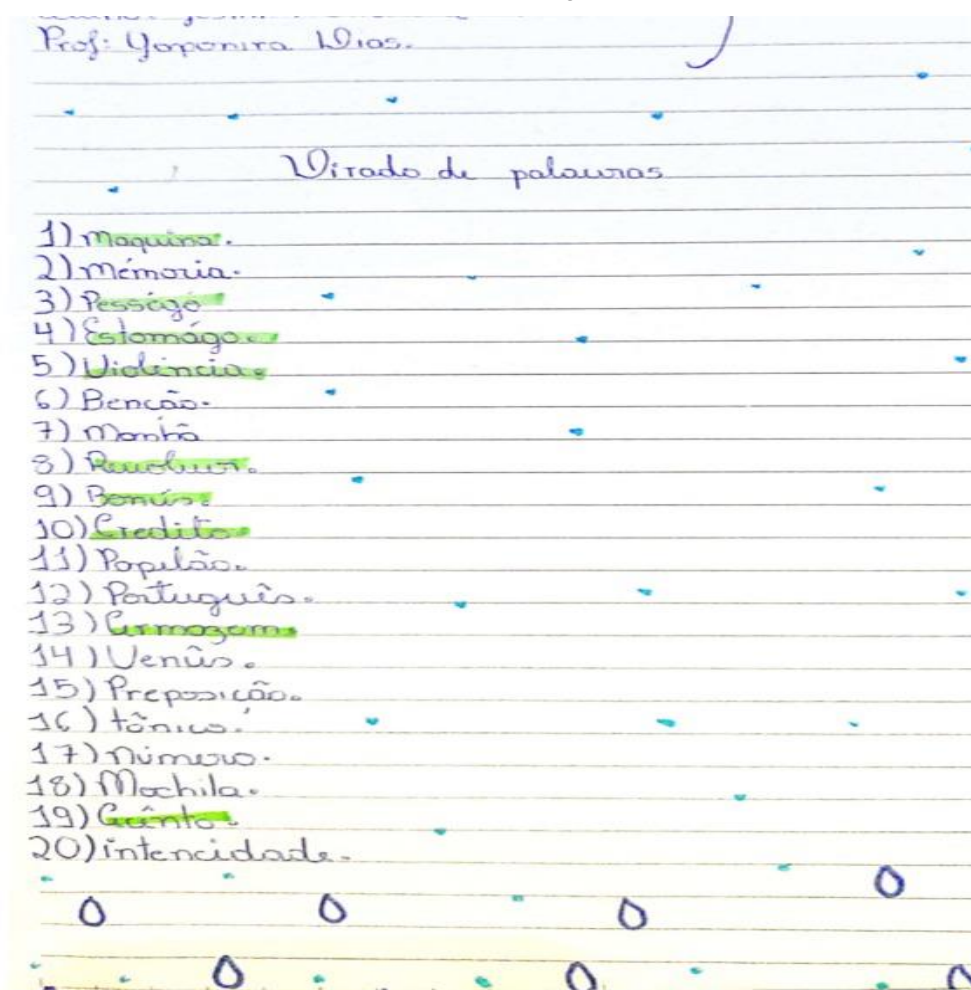 Prof: Yaponira Dias.
Ditado de palavras
1) Maquina.
2) mémoria.
3) Pességo
4) Estomágo.
5) Violência.
6) Bencão.
7) Manhã
8) Revolver.
9) Bonús.
10) Credito.
11) Papelão.
12) Português.
13) Armazem.
14) Venûs.
15) Preposição.
16) tônico.
17) número.
18) Mochila.
19)
20) intencidade.